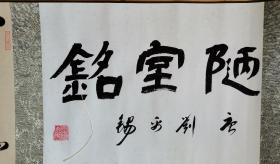 陋室銘
唐 劉禹錫